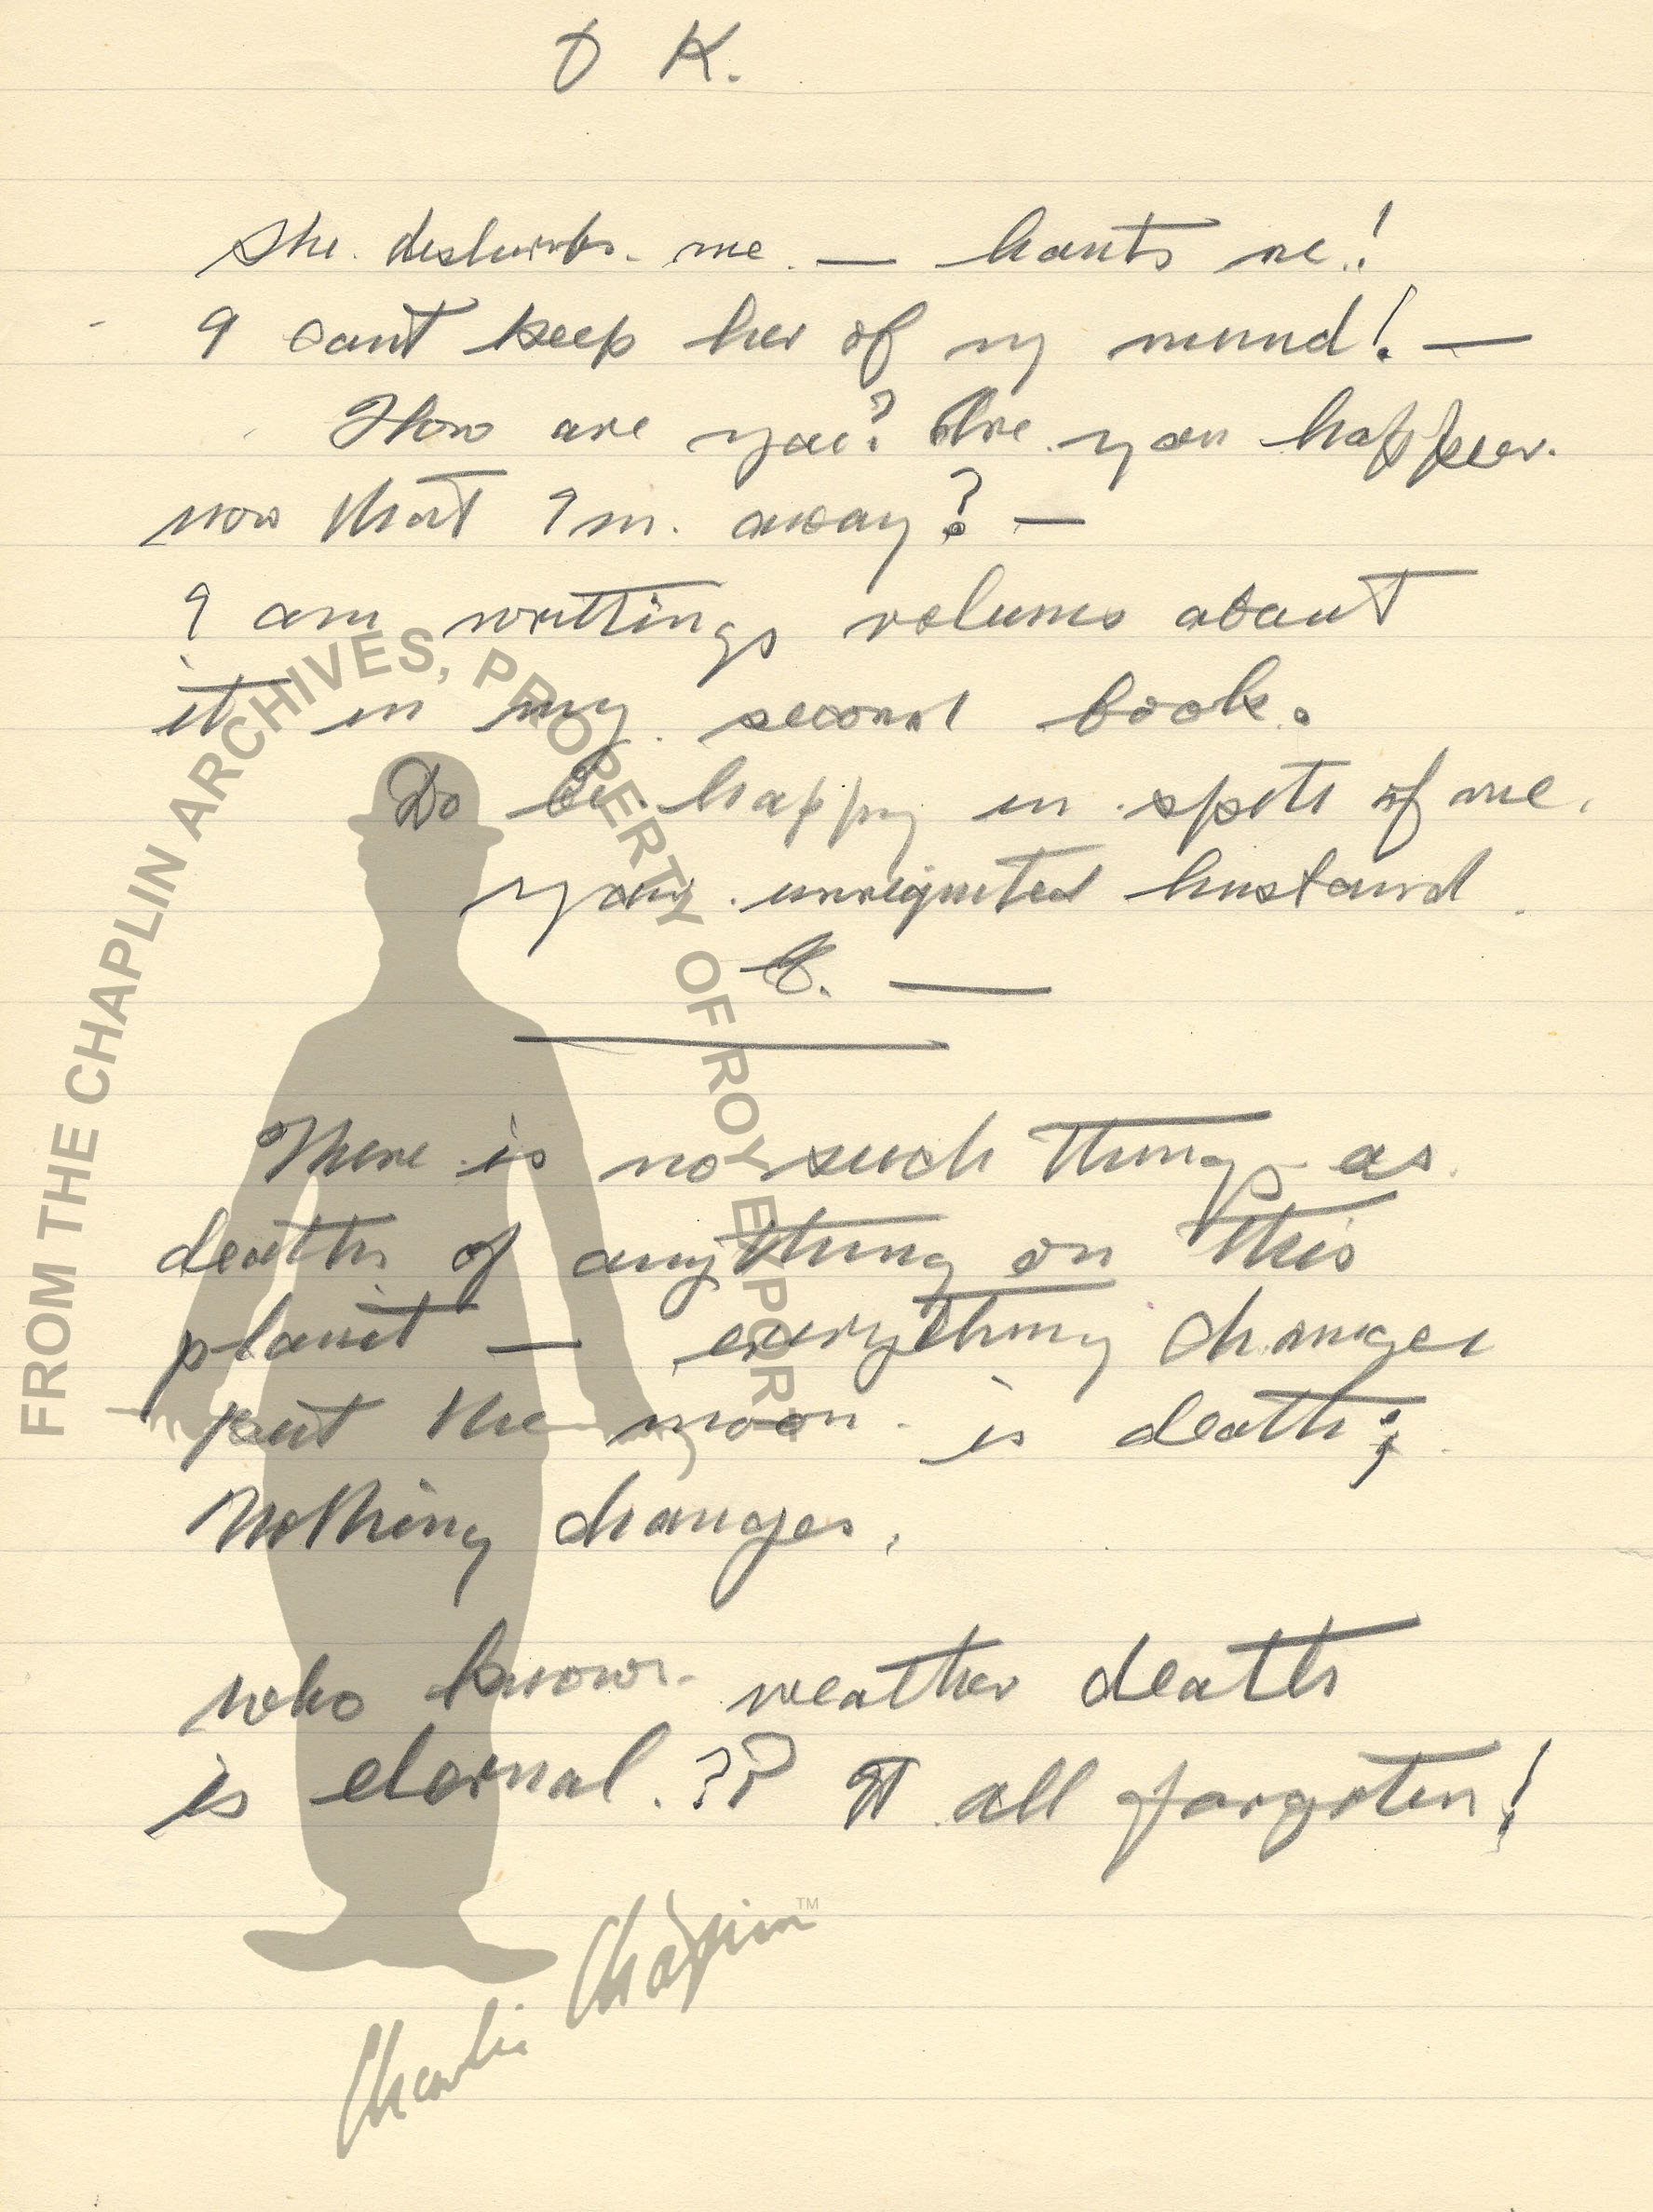 O K.
She. desturbs. me. — hants me!
I cant keep her of my mind! —
How are you? Are you happier.
now that Im. away? —
I am writting volums about
it in my second book.
Do be happy in spite of me.
your unriquited husband
C. —
There is no such thing as
death of anything on this
planet — everything changes
put the moon is death;
Nothing changes.
who knows weather death
is eternal.?? It all forgoten!
FROM THE CHAPLIN ARCHIVES, PROPERTY OF ROY EXPORT
Charlie Chaplin™